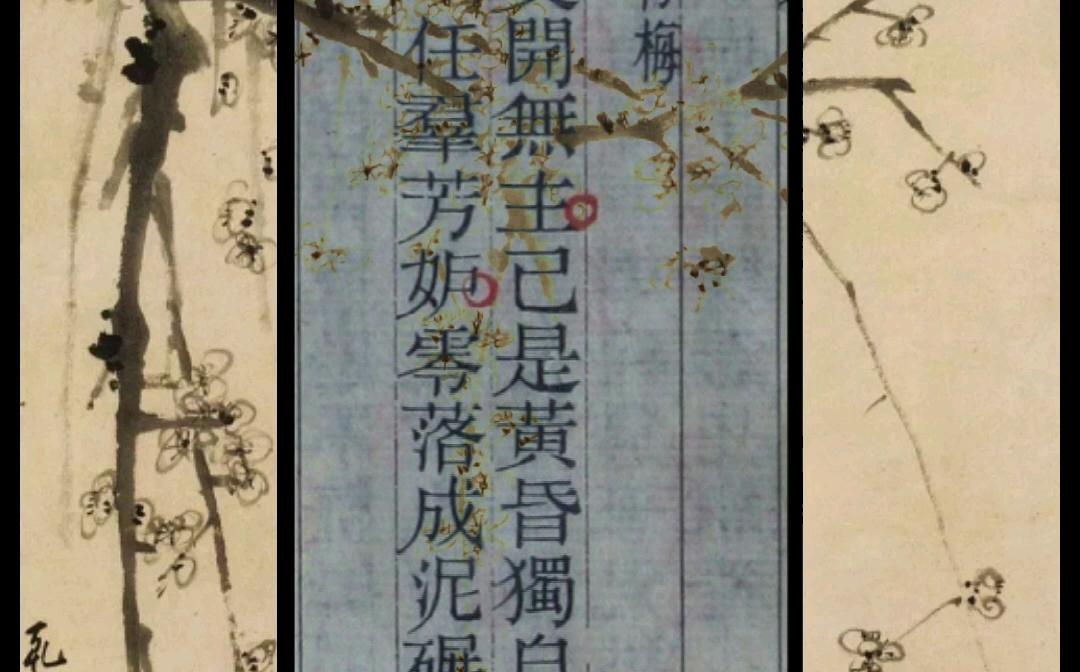 梅
開無主己是黃昏獨自
任羣芳妒零落成泥碾
乾